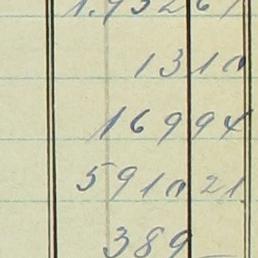 1.93261
1310
16994
591021
389